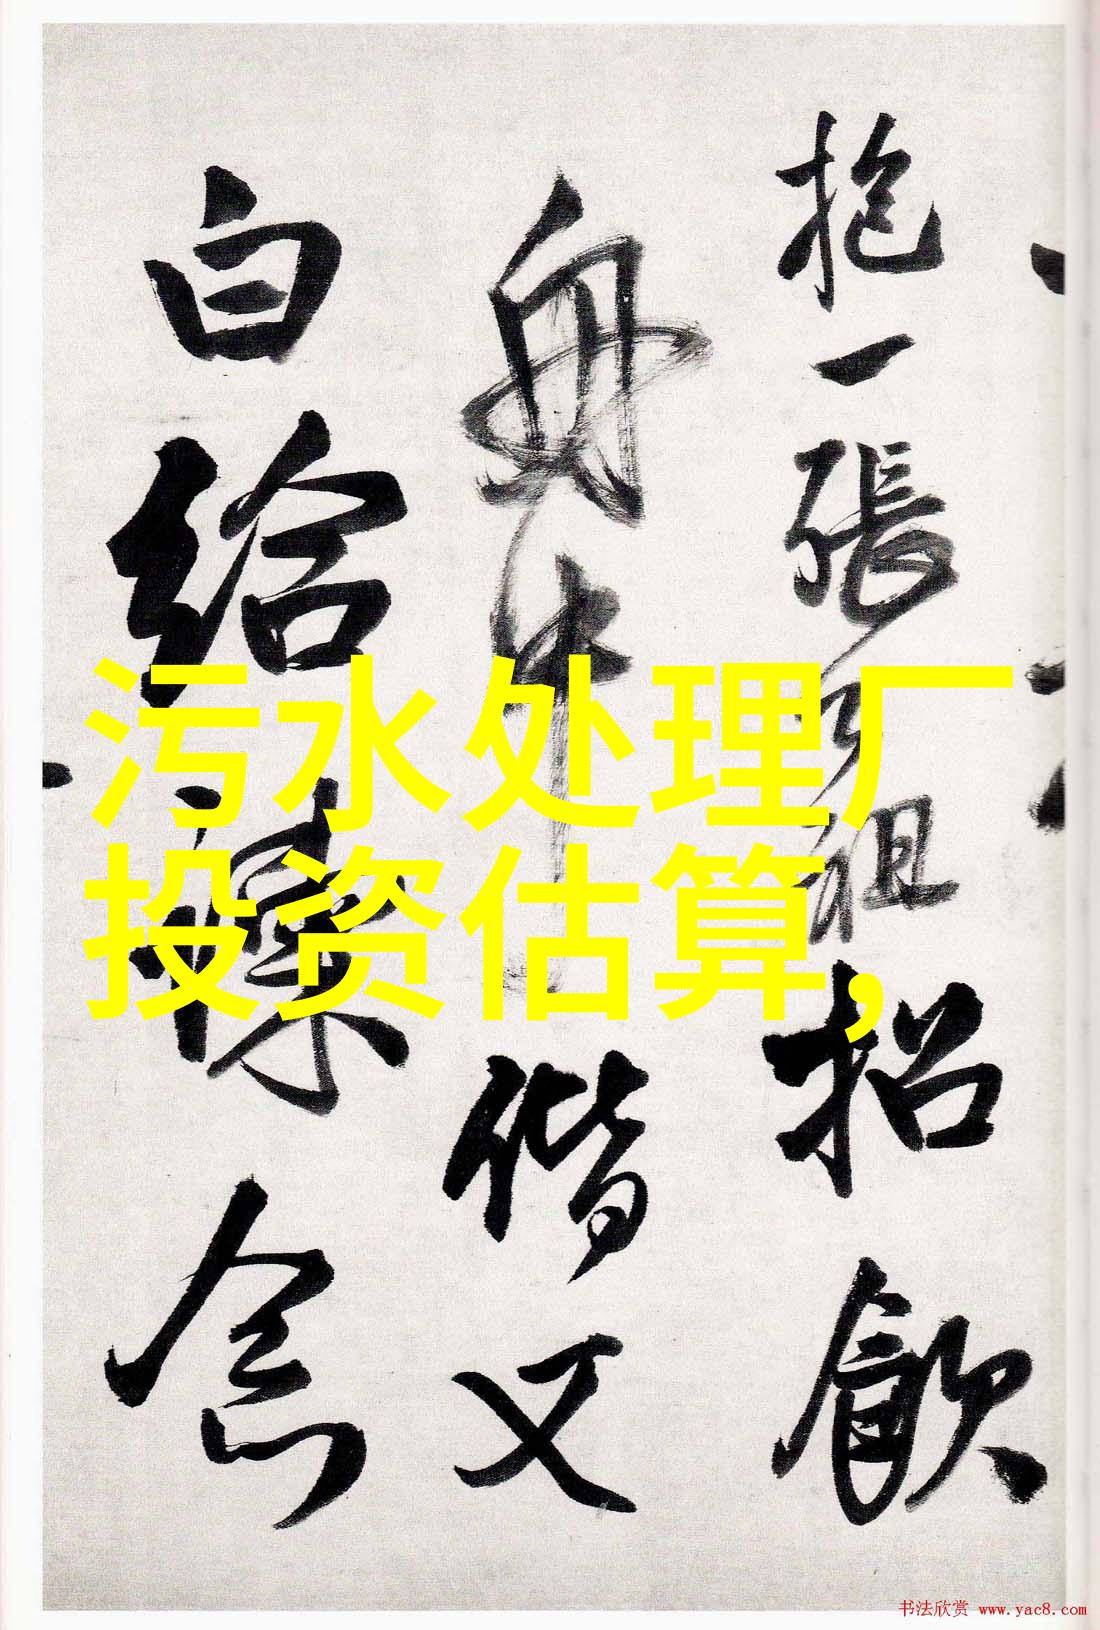 抱一張祖招飲
舟中偕又
白給
污水处理厂
投资估算,
书法欣赏 www.yac8.com